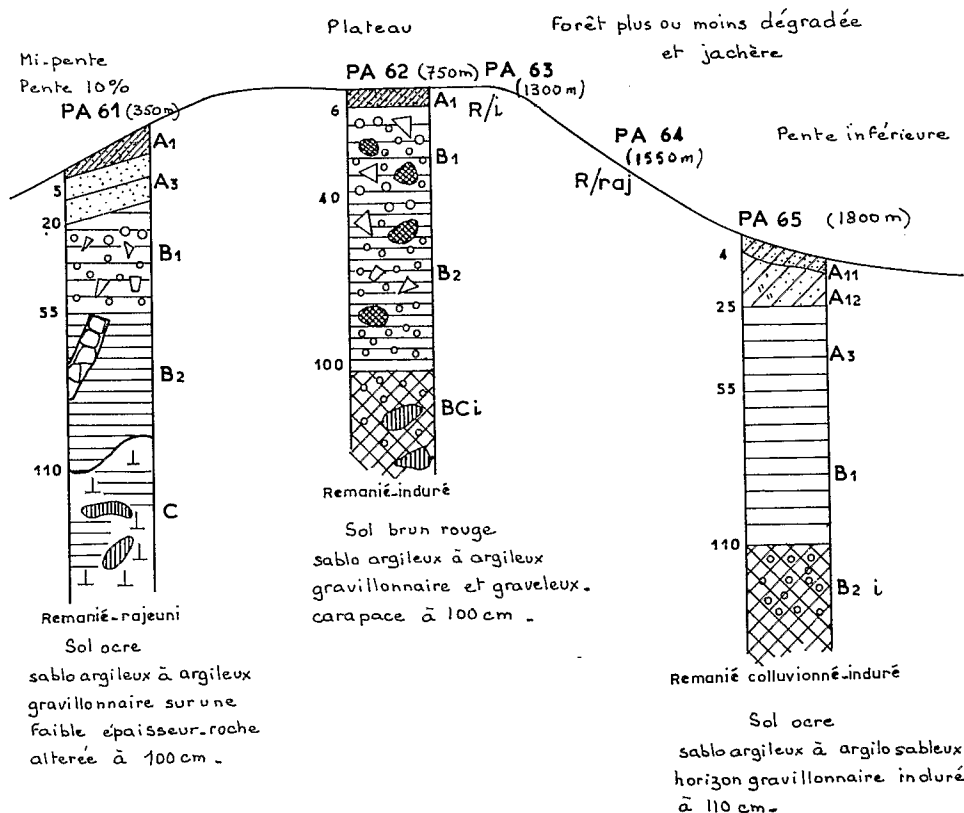 Plateau
Forêt plus ou moins dégradée
et jachère
Mi-pente
Pente 10%
PA 61 (350m)
PA 62 (750m)
PA 63
(1300m)
R/i
PA 64
(1550m)
R/raj
Pente inférieure
PA 65 (1800m)
A1
5
A3
20
B1
55
B2
110
C
Remanié-rajeuni
Sol ocre
sablo argileux à argileux
gravillonnaire sur une
faible épaisseur-roche
alterée à 100 cm.
A1
6
B1
40
B2
100
BC i
Remanié-induré
Sol brun rouge
sablo argileux à argileux
gravillonnaire et graveleux.
carapace à 100 cm.
4
A11
A12
25
A3
55
B1
110
B2 i
Remanié colluvionné-induré
Sol ocre
sablo argileux à argilo sableux
horizon gravillonnaire induré
à 110 cm.